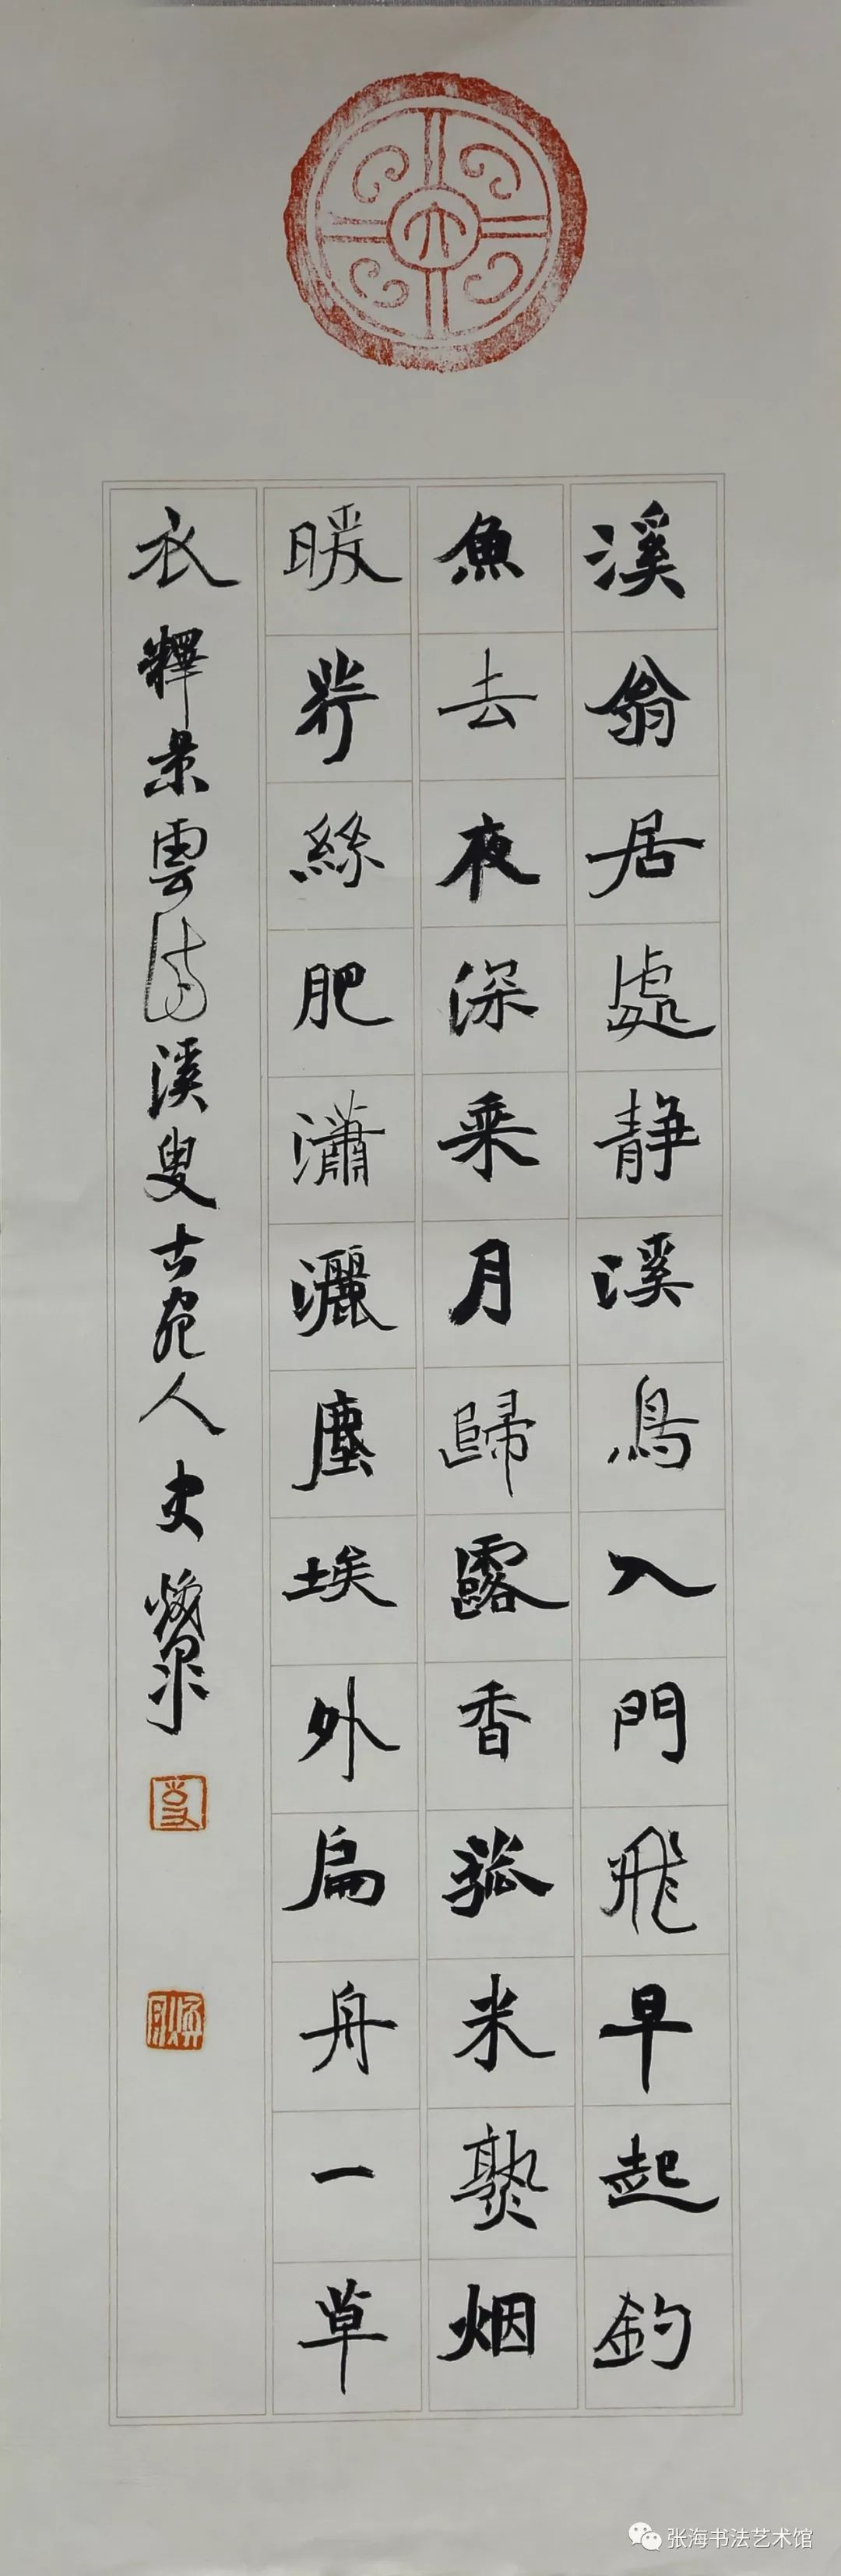 溪翁居處静溪鳥入門飛早起釣
魚去夜深乘月歸露香菰米熟烟
暖荇絲肥瀟灑塵埃外扁舟一草
衣 釋景雲诗溪叟古宛人史焕泉
张海书法艺术馆